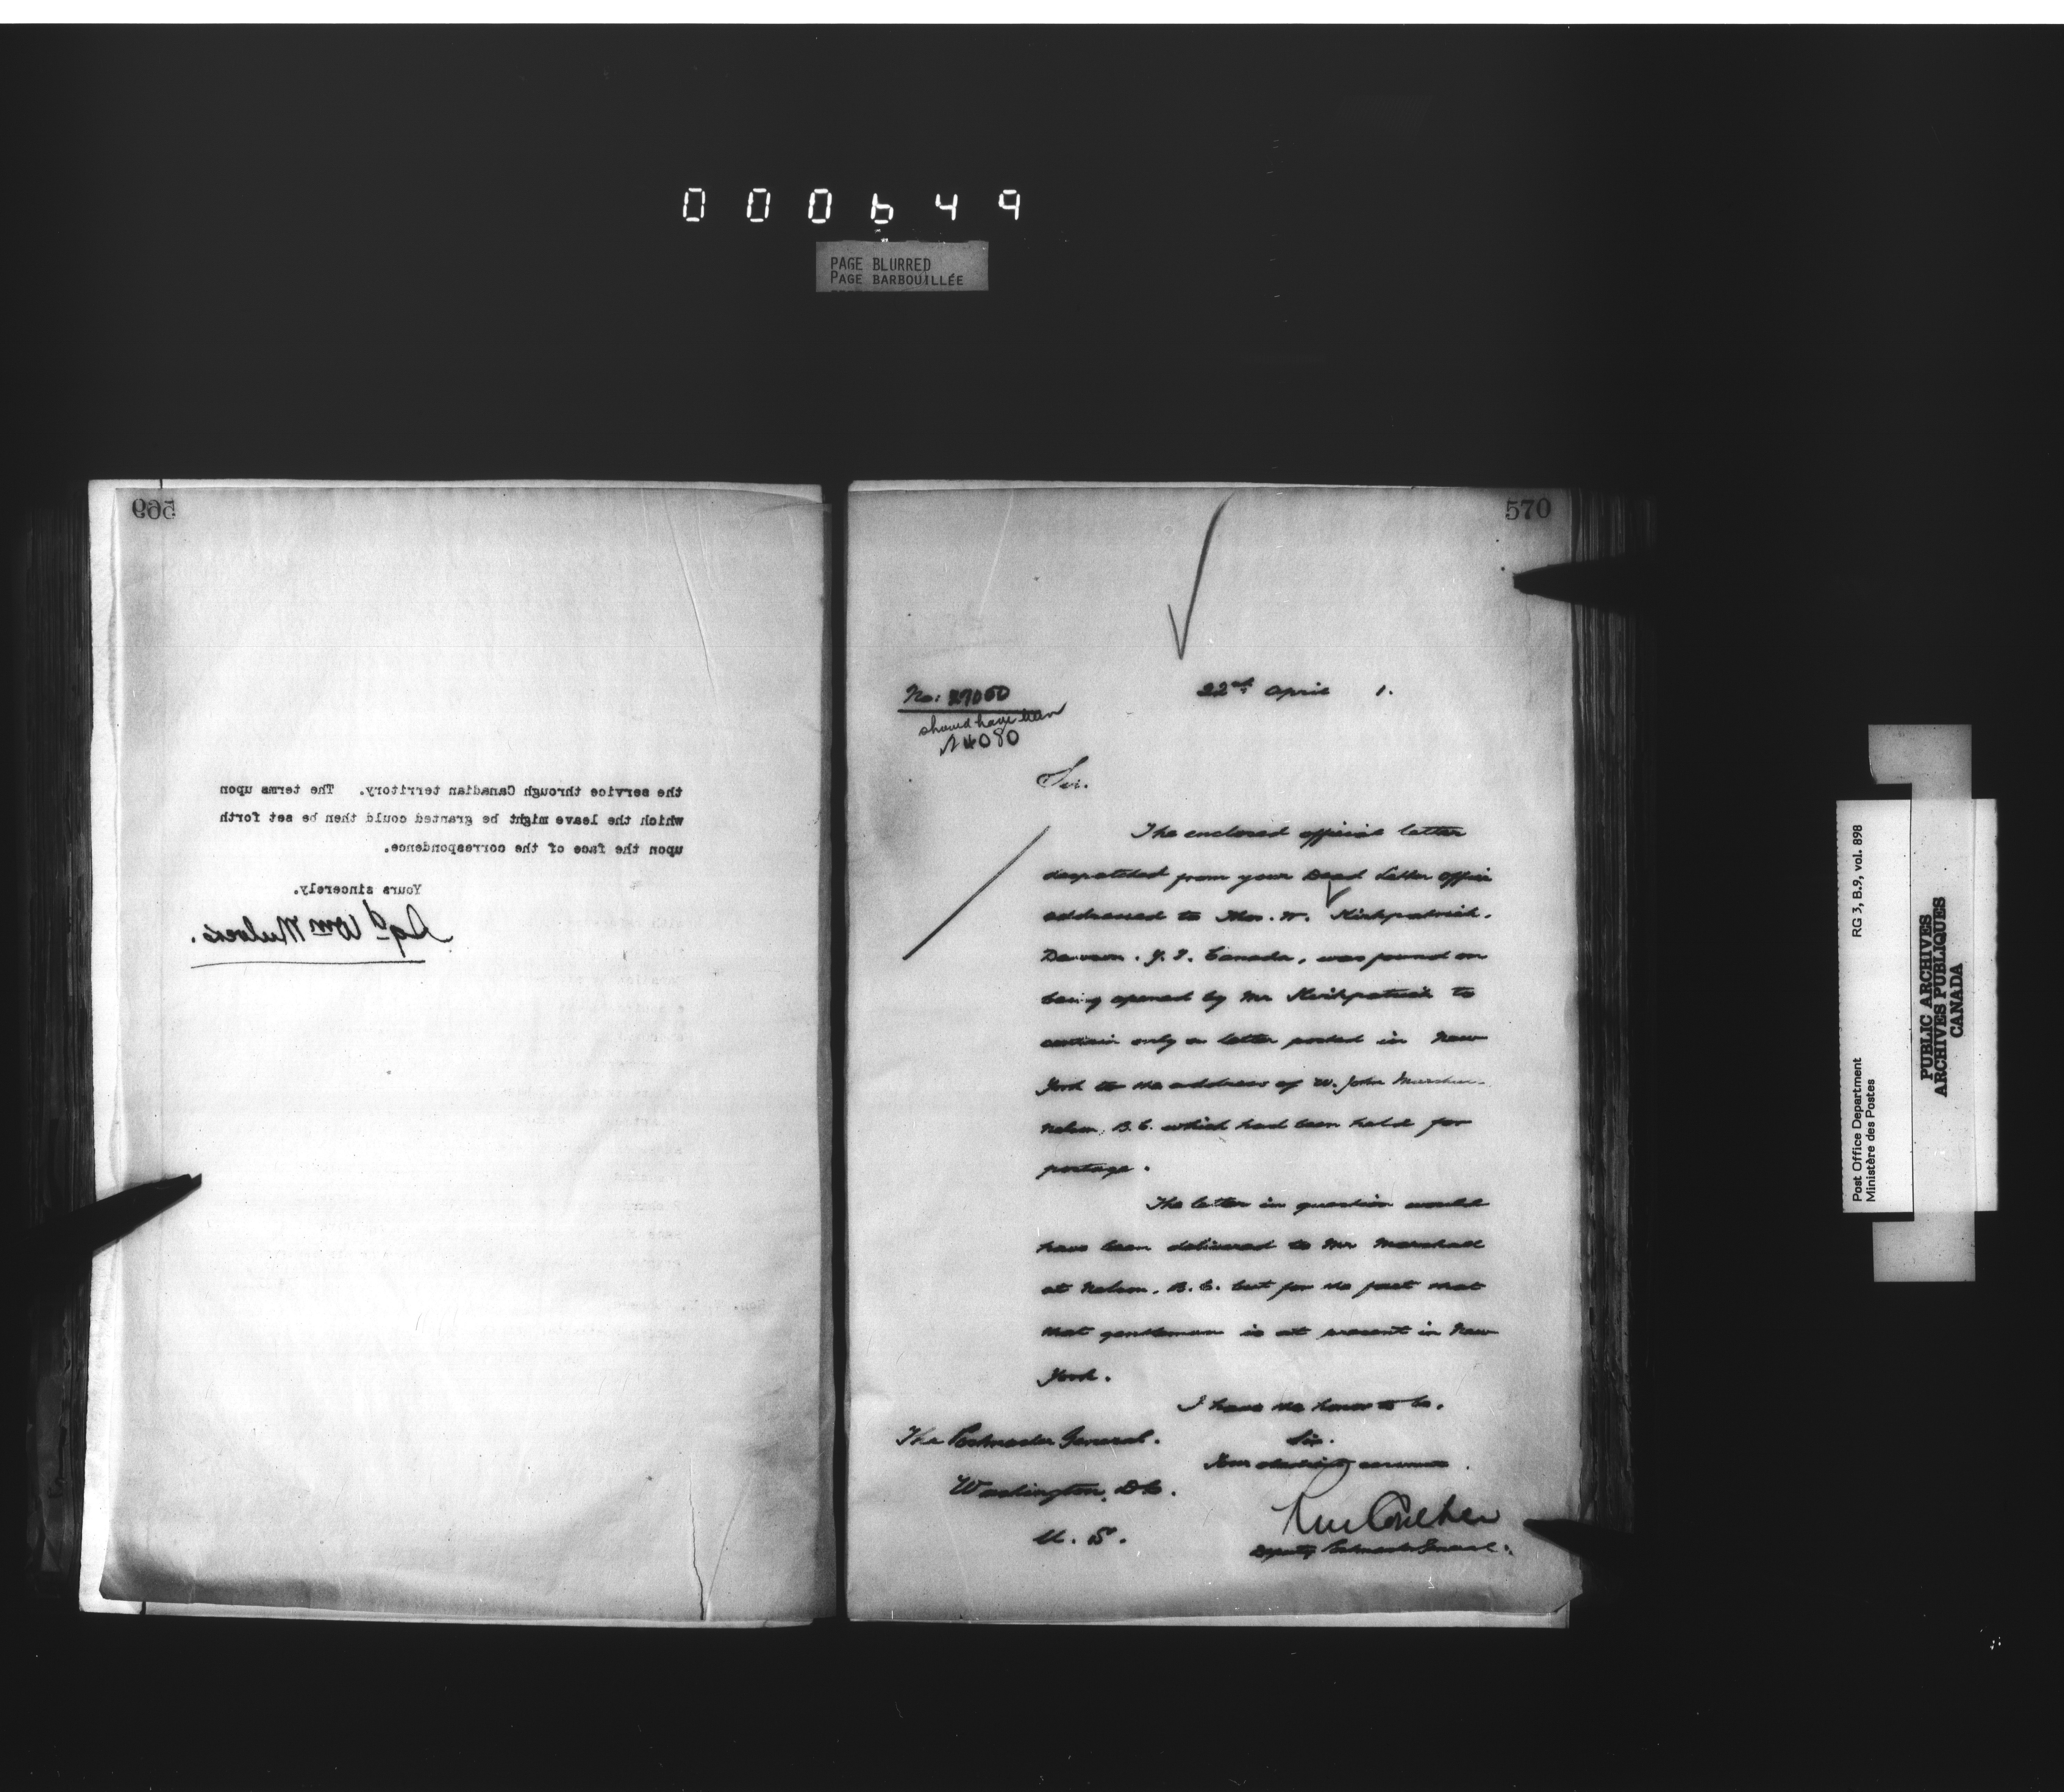 000649
PAGE BLURRED
PAGE BARBOUILLÉE
569
the service through Canadian territory. The terms upon
which the leave might be granted could then be set forth
upon the face of the correspondence.
Yours sincerely.
Sgd Wm Mulock.
570
22nd April 1.
No: 27050
should have been
Sir.
The enclosed official letter
despatched from your Dead Letter Office
addressed to Thos. W. Kirkpatrick.
Dawson. Y. T. Canada, was found on
being opened by Mr Kirkpatrick to
contain only a letter posted in New
York to the address of W. John
Nelson, B.C. which had been held for
postage.
The letter in question would
have been delivered to Mr Marshall
at Nelson, B.C. but for the fact that
that gentleman is at present in New
York.
I have the honor to be.
Sir.
Your obedient servant.
Coulter
Deputy Postmaster General.
The Postmaster General.
Washington, D.C.
U. S.
Post Office Department
Ministère des Postes
RG 3, B.9, vol. 898
PUBLIC ARCHIVES
ARCHIVES PUBLIQUES
CANADA